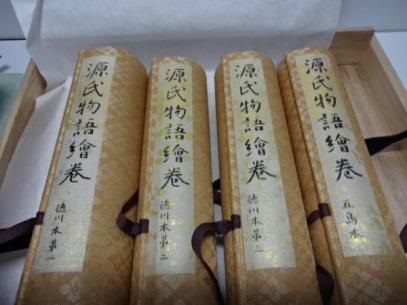 源氏物語繪卷 徳川本第一
源氏物語繪卷 徳川本第二
源氏物語繪卷 徳川本第三
源氏物語繪卷 五島本